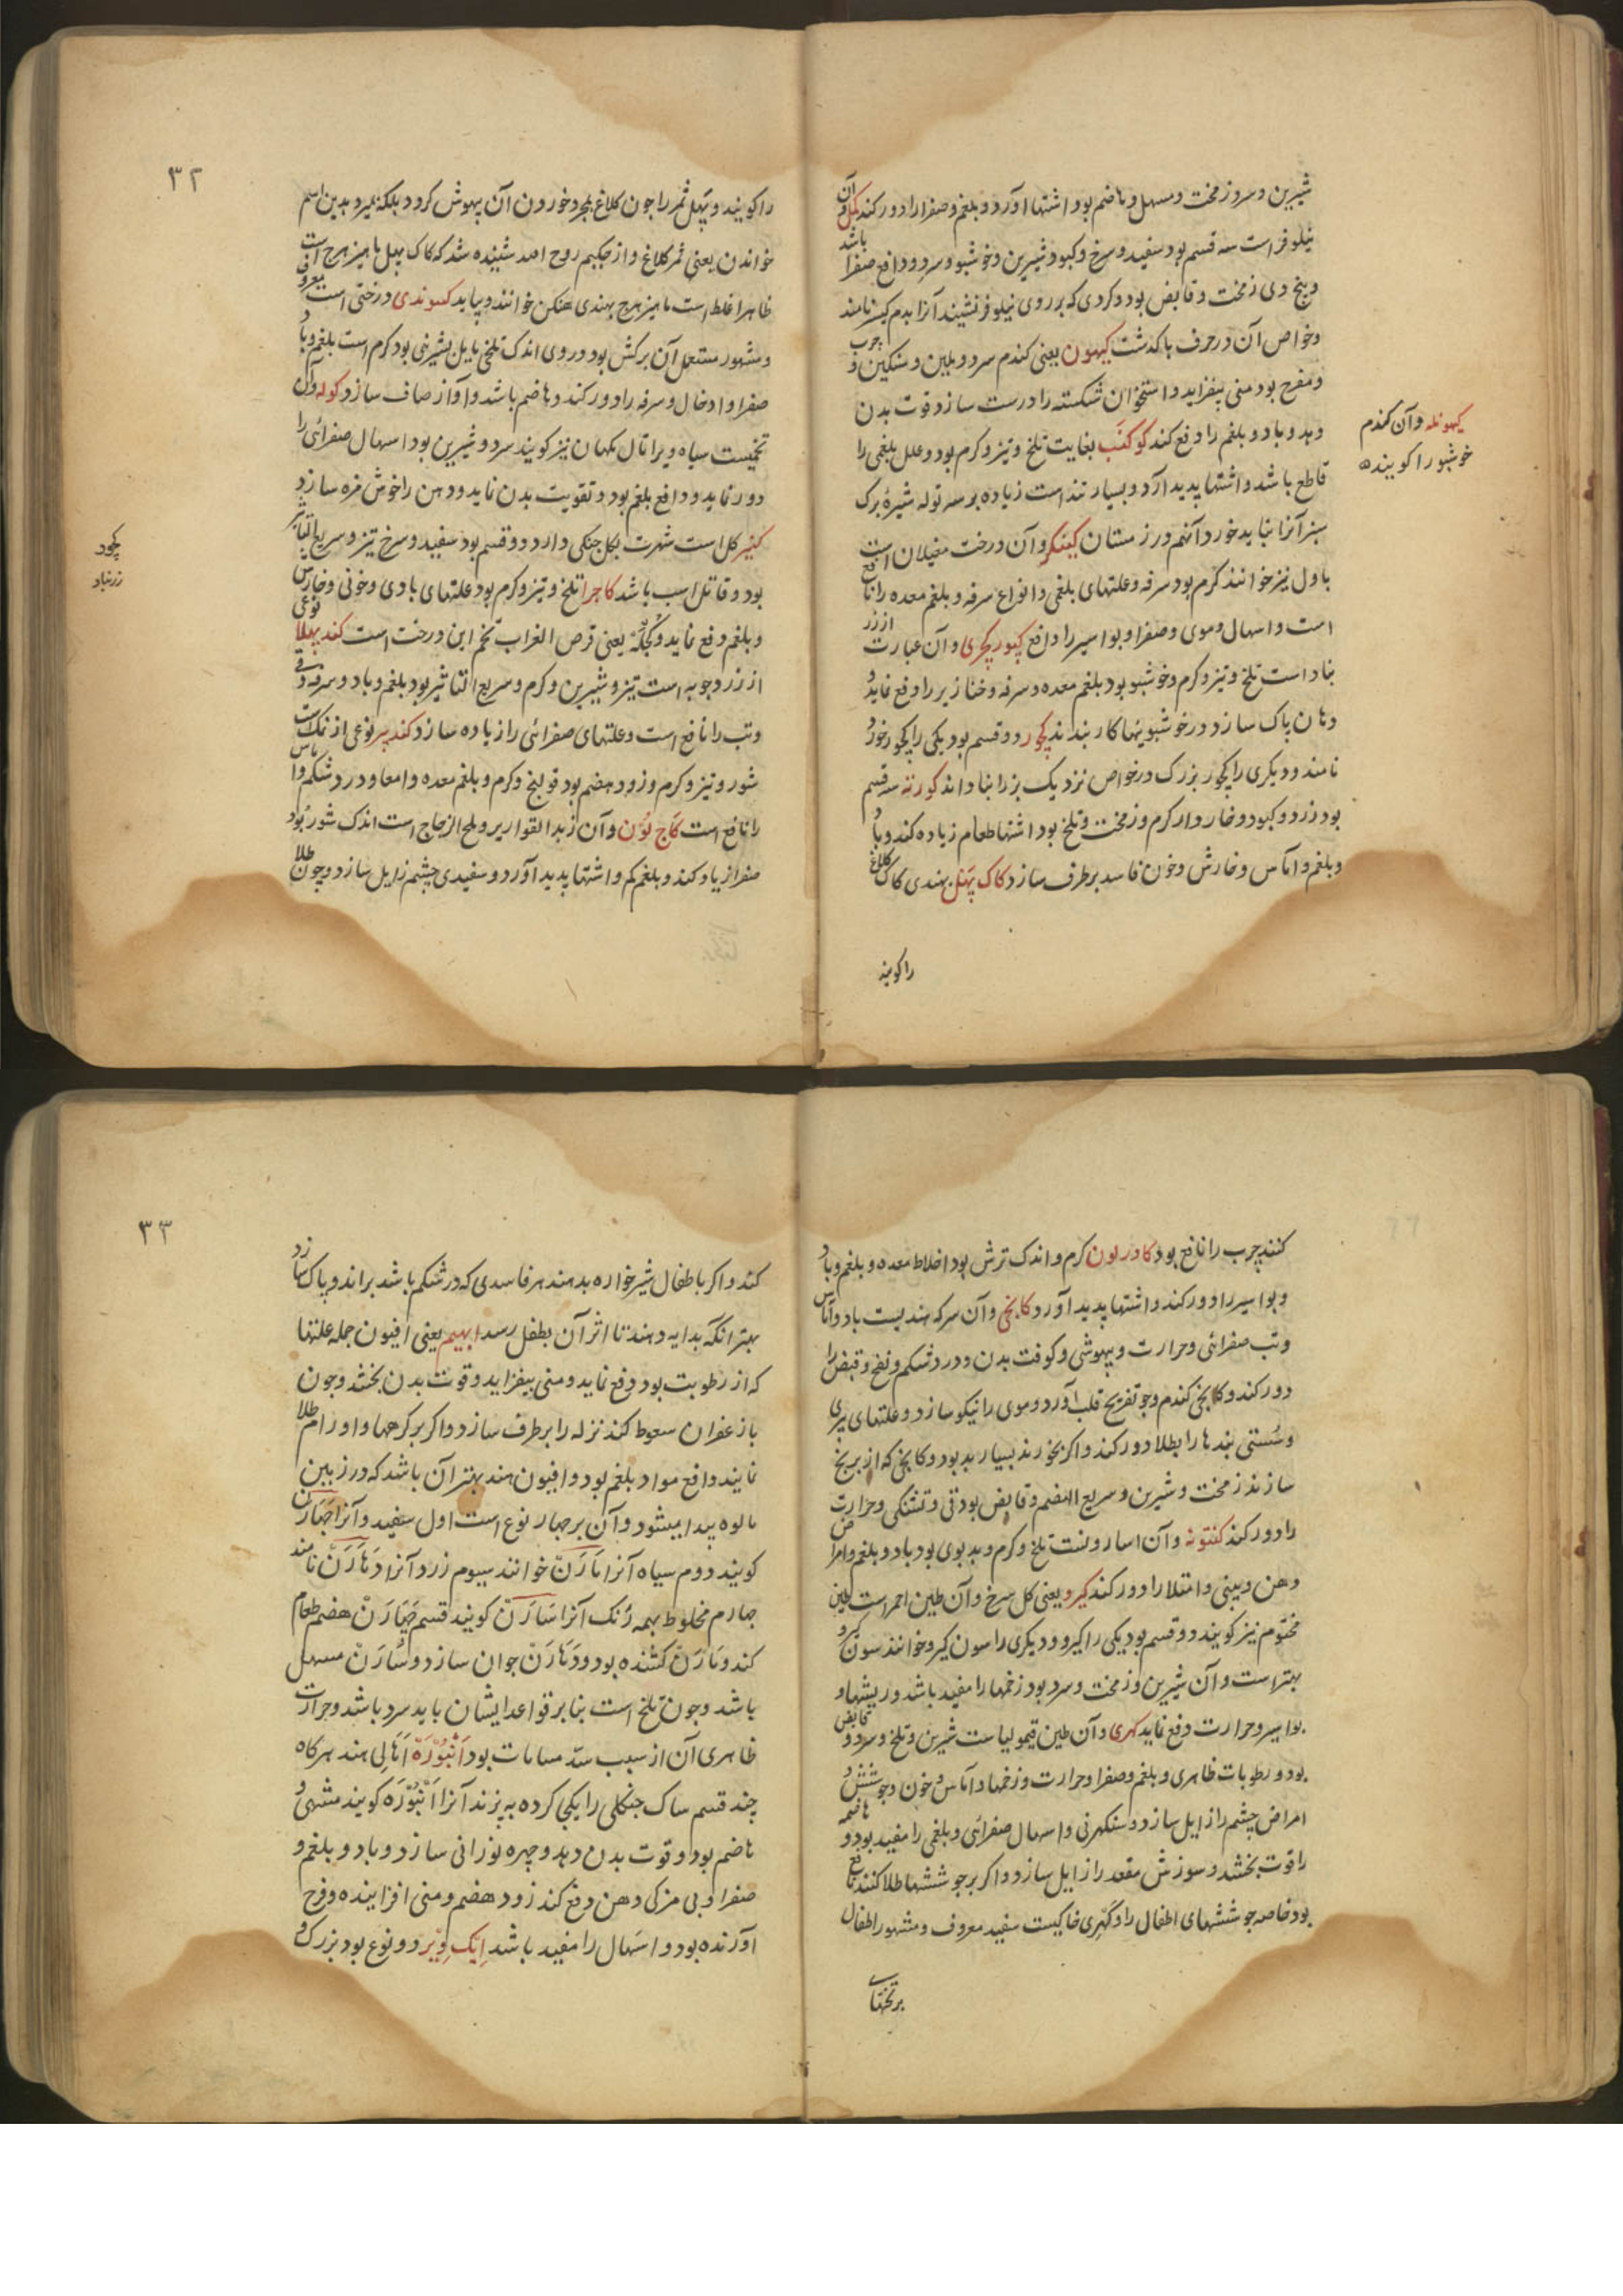 شیرین و سرد و زمخت و مسهل و هاضم بود اشتها آورد و بلغم و صفرا را دور کند کل و آن
نیلوفر است سه قسم بود سفید و سرخ و کبود شیرین و خوشبو و سرد و دافع صفرا باشد
و بیخ وی زمخت و قابض بود و کردی که بر روی نیلوفر نشیند آنرا بدم کیسر نامند
و خواص آن در حرف با کذشت کیهون یعنی کندم سرد و ملین و سنکین و چرب
و مفرح بود منی بیفزاید و استخوان شکسته را درست سازد قوت بدن
دهد و باد و بلغم را دفع کند کوکنب بغایت تلخ و تیز و کرم بود و علل بلغمی را
کیهونله و آن کندم
خوشبو را کویند
قاطع باشد و اشتها پدید آرد و بسیار تند است زیاده بر سه توله شیرۀ برک
سبز آنرا نباید خورد آنهم در زمستان کیتکر و آن درخت مغیلان است
باول نیز خوانند کرم بود سرفه و علتهای بلغمی و انواع سرفه و بلغم معده را نافع
است و اسهال دموی و صفرا و بواسیر را دافع کپور کچری و آن عبارت از زر
نباد است تلخ و تیز و کرم و خوشبو بود بلغم معده و سرفه و خنازیر را دفع نماید و
دهان پاک سازد در خوشبوئیها کار بندند کچور دو قسم بود یکی را کچور خورد
نامند و دیکری را کچور بزرک در خواص نزدیک بزرنباداند کورنته سه قسم
بود زرد و کبود و خاردار کرم و زمخت و تلخ بود اشتها طعام زیاده کند و باد
و بلغم و آماس و خارش و خون فاسد برطرف سازد کاک پهل بهندی کاک کلاغ
را کویند
۳۲
را کویند و پهل ثمر را چون کلاغ بمجرد خوردن آن بیهوش کردد بلکه بمیرد بدین اسم
خواندن یعنی ثمر کلاغ و از حکیم روح الله شنیده شد که کاک پهل ماهیزهرج است
ظاهرا غلط است ماهیزهرج بهندی هنکن خوانند و بیاید کسوندی درختی است معروف
و مشهور مستعمل آن برکش بود و روی اندک تلخ مایل بشیرینی بود کرم است بلغم و باد
صفرا و ادخال و سرفه را دور کند و هاضم باشد و آواز صاف سازد کوله و آن
تخمیست سیاه ویرا تال مکهان نیز کویند سرد و شیرین بود اسهال صفرائی را
دور نماید و دافع بلغم بود و تقویت بدن نماید و دهن را خوش مزه سازد
کنیر کل است شهرت بکل جنکی دارد دو قسم بود سفید و سرخ تیز و سریع التاثیر
کچور
زرنباد
بود و قاتل اسب باشد کاجرا تلخ و تیز و کرم بود علتهای بادی و خونی و خارش
و بلغم دفع نماید و کچله یعنی قرص الغراب تخم این درخت است کند بهلا نوعی
از زردچوبه است تیز و شیرین و کرم و سریع التاثیر بود بلغم و باد و سرفه و قی
و تب را نافع است و علتهای صفرائی را زیاده سازد کندیر نوعی از نمک است
شور و تیز و کرم و زود هضم بود قولنج و کرم و بلغم معده و امعا و درد شکم و آماس
را نافع است کاج لون و آن زبد القواریر و ملح الزجاج است اندک شور بود
صفرا زیاد کند و بلغم کم و اشتها پدید آورد و سفیدی چشم زایل سازد و چون طلا
کنند جرب را نافع بود کاورلون کرم و اندک ترش بود اخلاط معده و بلغم و باد
و بواسیر را دور کند و اشتها پدید آورد کانجی و آن سرکه هندیست باد و آماس
و تب صفرائی و حرارت و بیهوشی و کوفت بدن و درد شکم و نفخ و قبض را
دور کند و کانجی کندم و جو تفریح قلب آورد و موی را نیکو سازد و علتهای پیری
و سستی بندها را بطلا دور کند و اکر بخورند بسیار بد بود و کانجی که از برنج
سازند زمخت و شیرین و سریع الهضم و قابض بود قی و تشنکی و حرارت
را دور کند کنتونه و آن اسارونست تلخ و کرم و بدبوی بود باد و بلغم و امراض
دهن و بینی و امتلا را دور کند کیرو یعنی کل سرخ و آن طین احمر است طین
مختوم نیز کویند دو قسم بود یکی را کیرو و دیکری را سون کیرو خوانند سون کیرو
بهتر است و آن شیرین و زمخت و سرد بود زخمها را مفید باشد و ریشها و
بواسیر و حرارت دفع نماید کهری و آن طین قیمولیاست شیرین و تلخ و سرد و قابض
بود و رطوبات ظاهری و بلغم و صفرا و حرارت و زخمها و آماس و خون و جوشش و
امراض چشم را زایل سازد و سنکرهنی و اسهال صفرائی و بلغمی را مفید بود و هاضمه
را قوت بخشد و سوزش مقعد را زایل سازد و اکر بر جوششها طلا کنند نافع
بود خاصه جوششهای اطفال را و کهری خاکیست سفید معروف و مشهور اطفال
بر تختهای
۳۳
کند و اکر باطفال شیرخواره بدهند هر فاسدی که در شکم باشد براند و پاک سازد
بهتر آنکه بدایه دهند تا اثر آن بطفل رسد ابهیم یعنی افیون جمله علتها
که از رطوبت بود دفع نماید و منی بیفزاید و قوت بدن بخشد و چون
با زعفران سعوط کنند نزله را برطرف سازد و اکر بر کرهها و اورام طلا
نمایند دافع مواد بلغم بود و افیون هند بهترآن باشد که در زمین
مالوه پیدا میشود و آن بر چهار نوع است اول سفید و آنرا جهارن
کویند دوم سیاه آنرا مارن خوانند سیوم زرد آنرا دهارن نامند
چهارم مخلوط بهمه رنک آنرا سارن کویند قسم جهارن هضم طعام
کند و مارن کشنده بود و دهارن جوان سازد و سارن مسهل
باشد و چون تلخ است بنابر قواعد ایشان باید سرد باشد و حرارت
ظاهری آن از سبب سد مسامات بود انبوره اهالی هند هرکاه
چند قسم ساک جنکلی را یکجی کرده بپزند آنرا انبوره کویند مشتهی و
هاضم بود و قوت بدن دهد و چهره نورانی سازد و باد و بلغم و
صفرا و بی مزکی دهن دفع کند زود هضم و منی افزاینده و فرح
آورنده بود و اسهال را مفید باشد ایک ویر دو نوع بود بزرک و